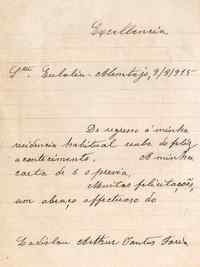 Excellencia
Sta. Eulalia - Alemtejo, 9/8/915
De regresso á minha
residencia habitual soube do feliz
acontecimento. A minha
carta de 5 o previa,
Muitas felicitações,
um abraço affectuoso do
Ladislau Arthur Santos Faria